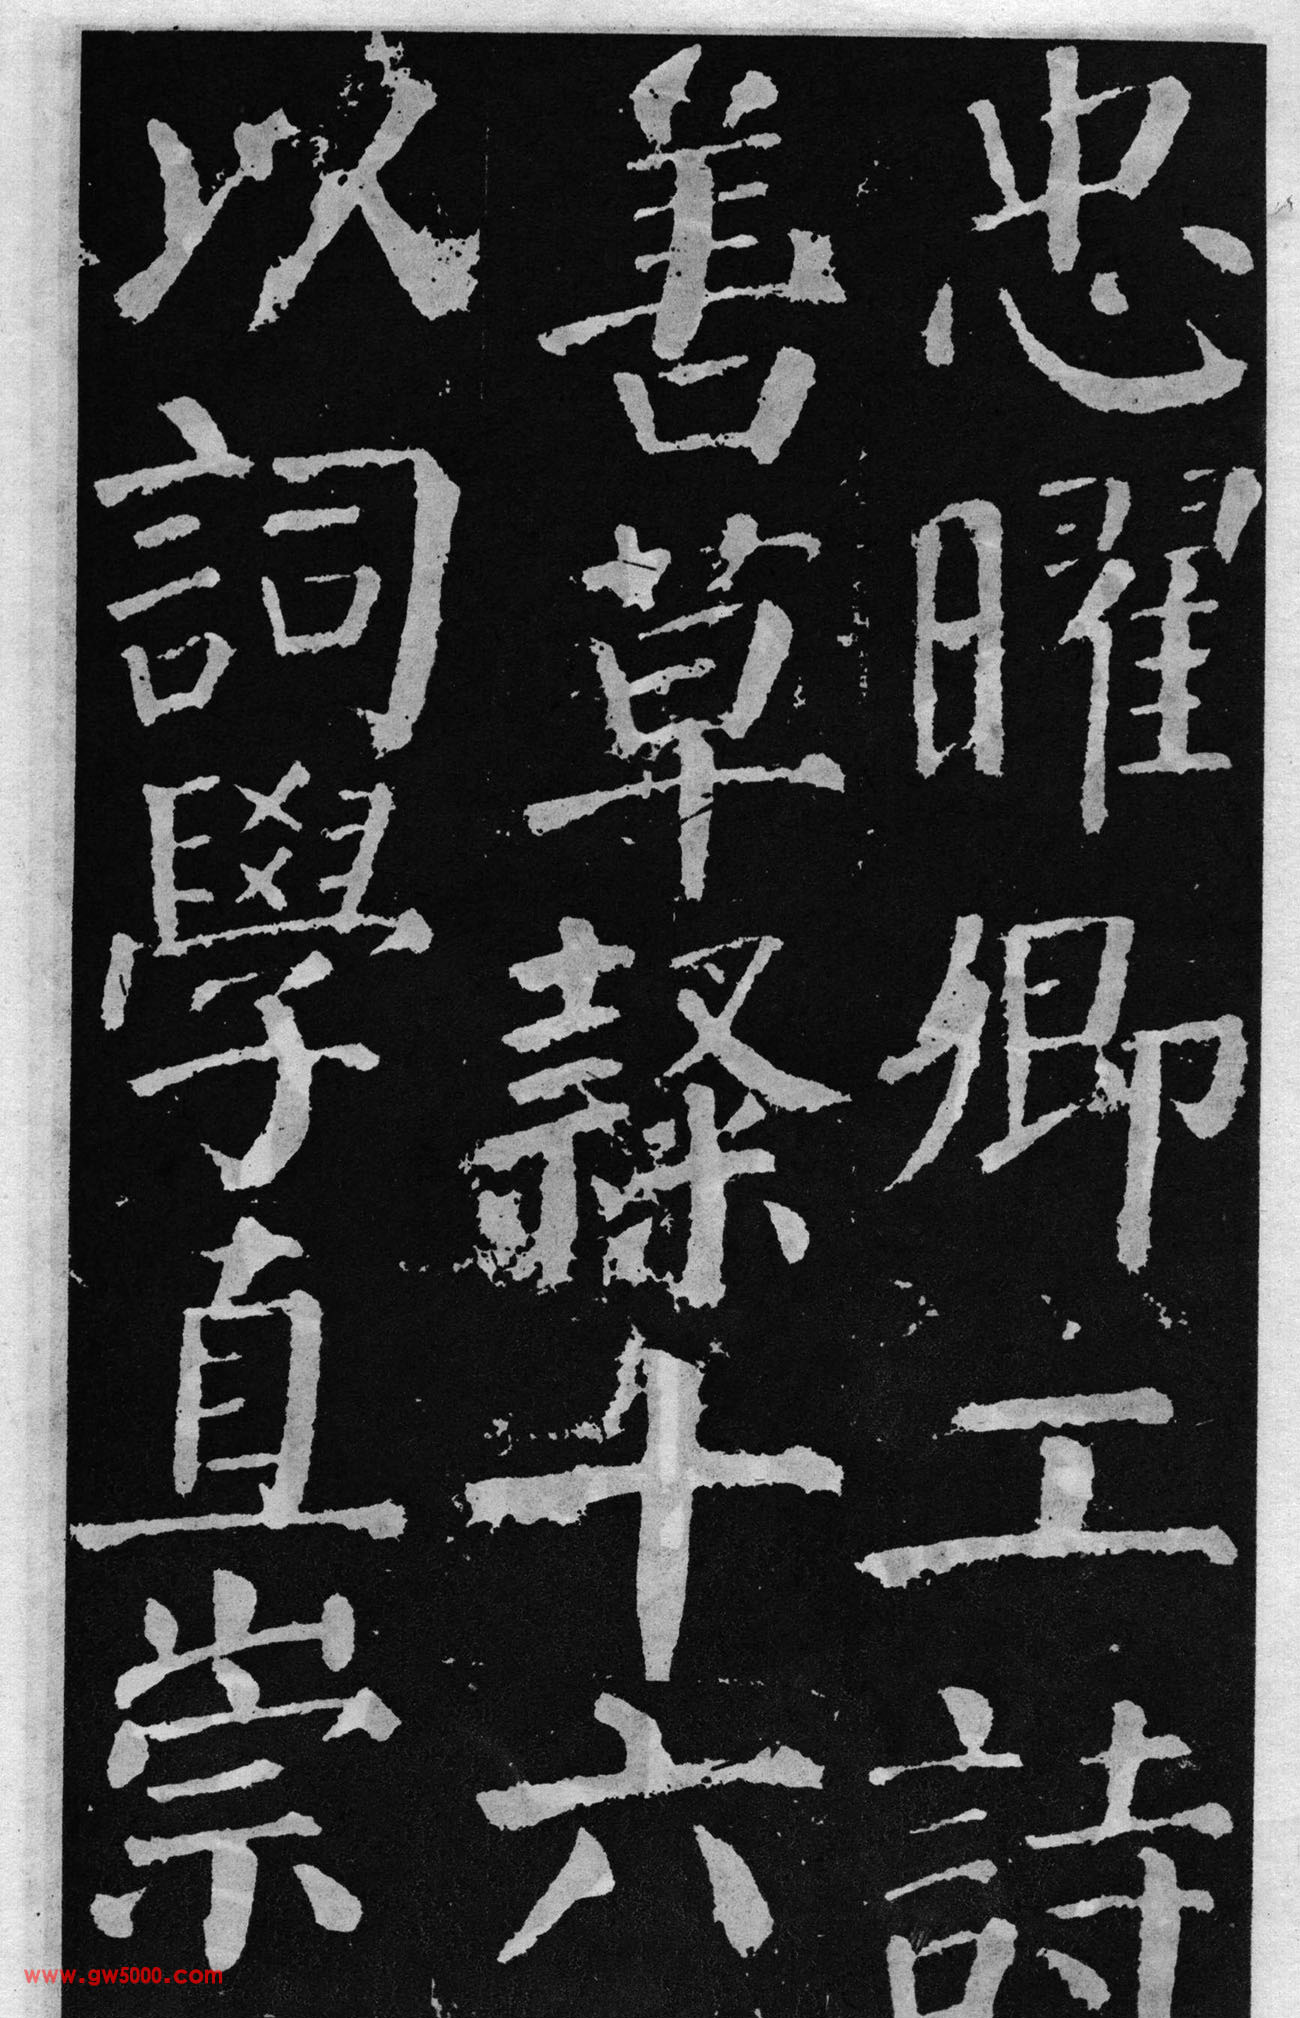 忠曜卿工詩
善草隸十六
以詞學直崇
www.gw5000.com